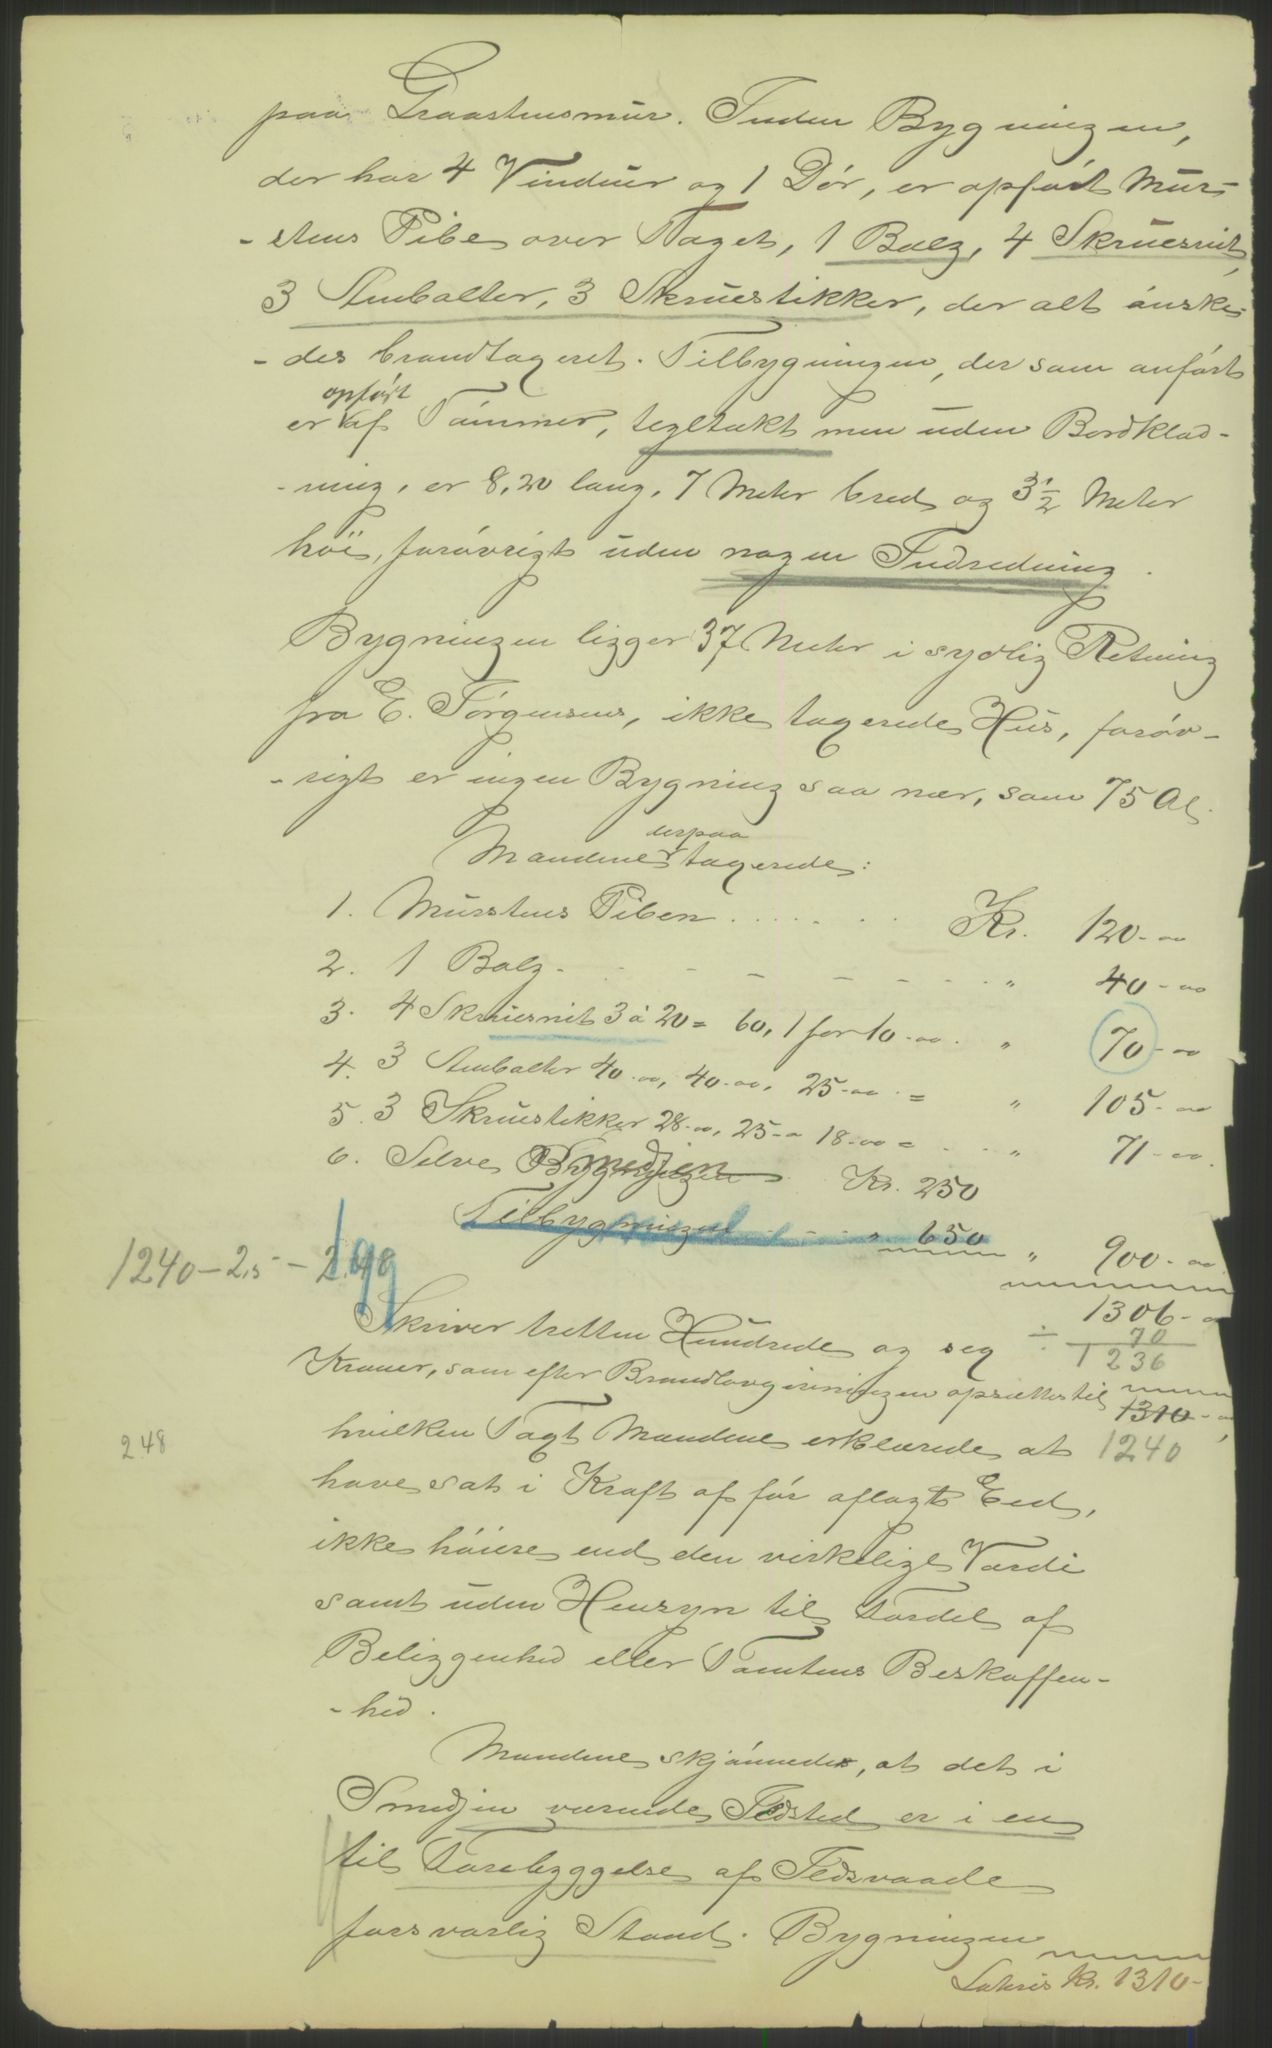 paa Graastensmur. Inden Bygningen,
der har 4 Vinduer og 1 Dór, er opført Mur-
- stens Pibe over Taget, 1 Balg, 4 Skruesnit,
3 Ambolter, 3 Skruestikker, der alt ónske-
- des brandtaxeret. Tilbygningen, der som anført
opført
er af Tómmer, tegltækt men uden Bordklæd-
- ning, er 8,20 lang, 7 Meter bred og 3 1/2 Meter
hói, forøvrigt uden nogen Indredning.
Bygningen ligger 37 Meter i sydlig Retning
fra E. Jørgensens, ikke taxerede Hus, forøv-
- rigt er ingen Bygning saa nær, som 75 Al.
derpaa
Mændene taxerede:
1. Murstens Piben . . . . . . Kr. 120-00
2. 1 Balg - - - - - - - " 40-00
3. 4 Skruesnit 3 à 20 = 60, 1 for 10-00. " 70-00
4. 3 Ambolter 40-00, 40-00, 25-00 = " 105-00
5. 3 Skruestikker 28-00, 25- 18-00 = . . " 71-00.
6. Selve Smedjen Kr. 250
Tilbygningen - - - " 650 " 900-00
1240 - 2,5 - 2.48
1306-
÷ 70
Skriver tretten Hundrede og sex 1236
Kroner, som efter Brandlovgivningen opsættes til 1310-
248
hvilken Taxt Mændene erklærede at 1240
have sat i Kraft af før aflagt Eed,
ikke hóiere end den virkelige Værdi
samt uden Hensyn til Fordel af
Beliggenhed eller Tomtens Beskaffen-
- hed.
Mændene skjónnede, at det i
Smedjen værende Ildsted er i en
til Forebyggelse af Ildsvaade
forsvarlig Stand. Bygningen
Lateris Kr. 1310-